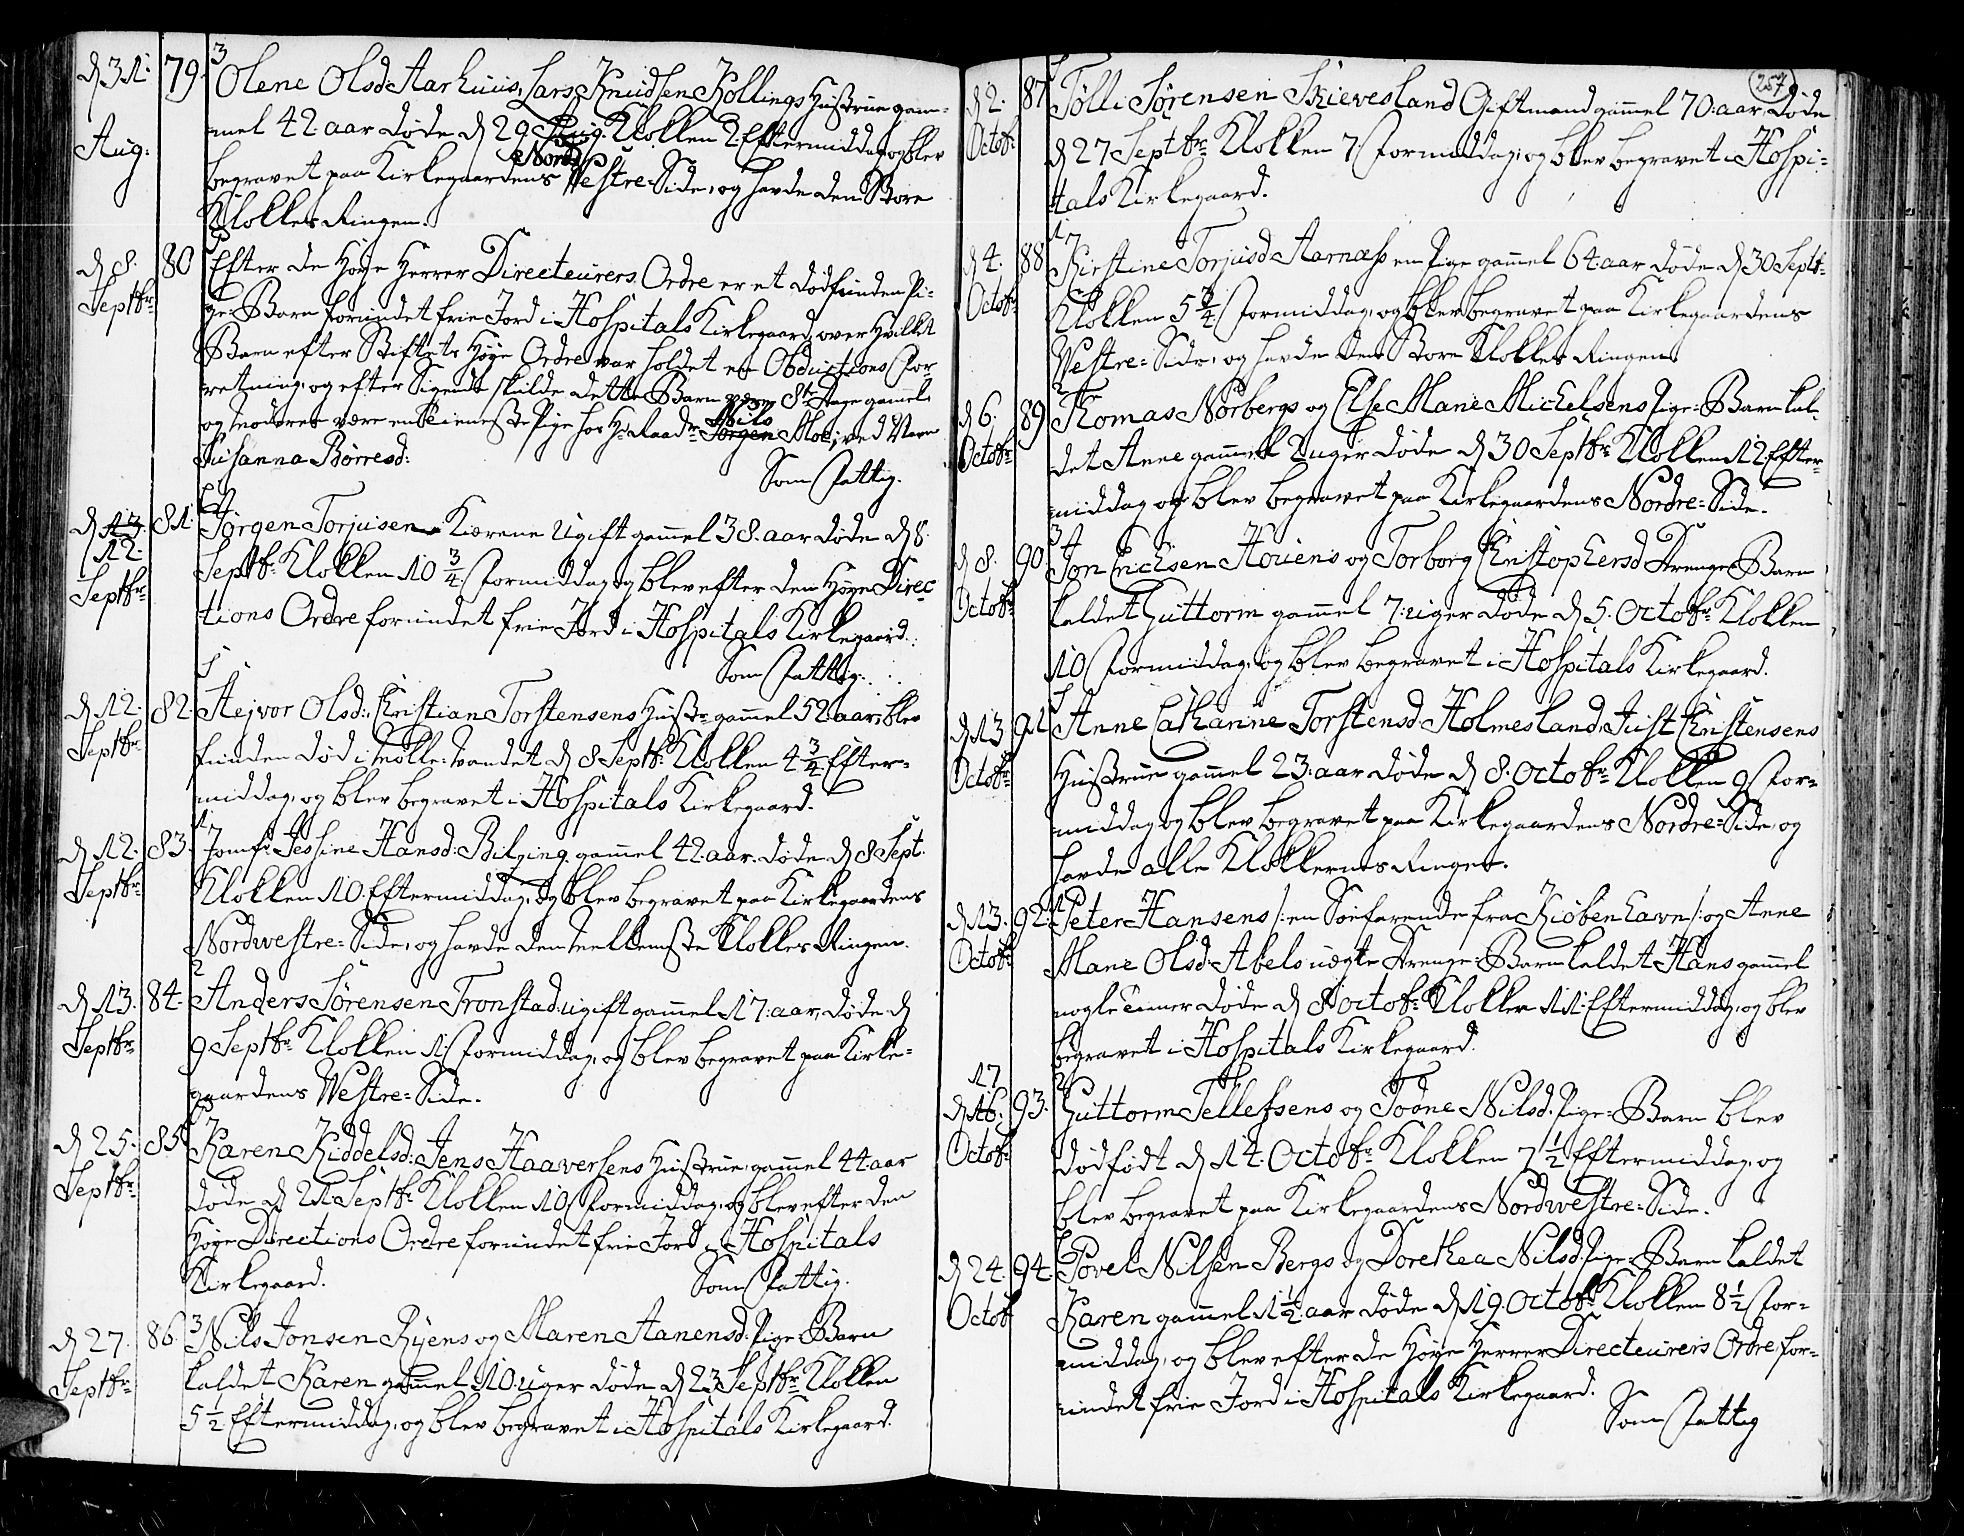 d 31. 79. 3 Olene Olsd Aarhuus, Lars Knudsen Kollings Hustrue gam-
Aug: mel 42 aar døde d 29 Aug. Klokken 2 Eftermiddag og blev
Nord
begravet paa Kirkegaardens Westre-Side, og havde den Store
Klokkes Ringen.
d 8. 80 Efter de Høye Herrer Directeurers Ordre er et dødfunden Pi-
Septbr ge-Barn forundet frie Jord i Hospitals Kirkegaard, over hvilket
Barn efter Stiftets Høye Ordre var holdet en Obductions For
retning, og efter Sigende skulde dette Barn være 8te Dage gammel
Nils
og Moderen være en Tieneste Pige hos Hr Raadm Jørgen Moe, ved Navn
Susanna Børresd:
Som Fattig.
d 13. 81. Jørgen Torjusen Kiærene Ugift gammel 38. aar døde d 8.
12.
Septbr Septbr Klokken 10 3/4 Formiddag og blev efter den Høye Direc
tions Ordre forundet frie Jord i Hospitals Kirkegaard.
Som Fattig.
d 12. 82. Aejvor Olsd: Christian Torstensens Hustr gammel 52 aar, blev
Septbr funden død i Mølle-Vandet d 8 Septbr Klokken 4 3/4 Efter-
middag, og blev begravet i Hospitals Kirkegaard.
d 12. 83. 1 Jomfr Jessine Hansd: Bilzing gammel 42. aar. døde d 8 Sept.
Septbr Klokken 10. Eftermiddag, og blev begravet paa Kirkegaardens
Nordwestre-Side, og havde den Mellemste Klokkes Ringen.
d 13. 84. 2 Anders Sørensen Tronstad ugift gammel 17. aar, døde d
Septbr 9 Septbr Klokken 1 Formiddag, og blev begravet paa Kirke-
gaardens Westre-Side.
d 25. 85 Karen Kiddelsd: Jens Haaversens Hustrue, gammel 44 aar
Septbr døde d 21 Septbr Klokken 10 Formiddag, og blev efter den
Høye Directions Ordre forundet frie Jord i Hospitals
Kirkegaard. Som Fattig.
d 27. 86. 3 Nils Jonsen Ryens og Maren Aanensd. Pige-Barn
Septbr kaldet Karen gammel 10. uger døde d 23 Septbr Klokken
5 1/2 Eftermiddag, og blev begravet i Hospitals Kirkegaard.
257
d 2. 87 Tølli Sørensen Skievesland Giftmand gammel 70. aar, døde
Octobr d 27 Septbr Klokken 7. Formiddag, og blev begravet i Hospi-
tals Kirkegaard.
d 4. 88 1 Kirstine Torjusd Aarnæss en Pige gammel 64 aar døde d 30 Septbr
Octobr Klokken 5 3/4 Formiddag, og blev begravet paa Kirkegaardens
Westre-Side, og havde den Store Klokkes Ringen.
d 6. 89 2 Thomas Norbergs og Else Marie Michelsens Pige-Barn kal-
Octobr det Anne gammel 2 uger døde d 30 Septbr Klokken 12 Efter-
middag og blev begravet paa Kirkegaardens Nordre-Side.
d 8. 90 3 Jon Erichsen Houens og Torborg Christophersd Drenge-Barn
Octobr kaldet Guttorm gammel 7. uger døde d 5. Octobr Klokken
10 Formiddag, og blev begravet i Hospitals Kirkegaard.
d 13 91 Anne Catharine Torstensd Holmesland, Just Christensens
Octobr Hustrue gammel 23. aar døde d 8. Octobr Klokken 9 For-
middag og blev begravet paa Kirkegaardens Nordre-Side, og
havde alle Klokkernes Ringer.
d 13. 92. Peter Hansens /: en Søefarende fra Kiøbenhavn /: og Anne
Octobr Marie Olsd Abels uægte Drenge-Barn kaldet Hans gammel
nogle Timer døde d 8 Octobr Klokken 11. Eftermiddag, og blev
begravet i Hospitals Kirkegaard.
17
d 16. 93. 2 Guttorm Tellefsens og Todne Nilsd. Pige-Barn blev
Octobr dødfødt d 14. Octobr Klokken 7 1/2 Eftermiddag, og
blev begravet paa Kirkegaardens Nordwestre-Side.
d 24. 94. Povel Nilsen Bergs og Dorethea Nilsd Pige-Barn kaldet
Octobr Karen gammel 1 1/2 aar døde d 19. Octobr Klokken 8 1/2 For-
middag, og blev efter de Høye Herrer Directeurers Ordre for-
undet frie Jord i Hospitals Kirkegaard.
Som Fattig